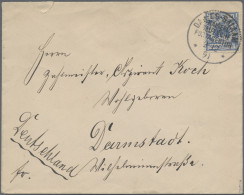 Herrn
Zahlmeister, Aspirant Koch
Wohlgeboren
Darmstadt.
Deutschland
fr. Wilhelminenstraße.